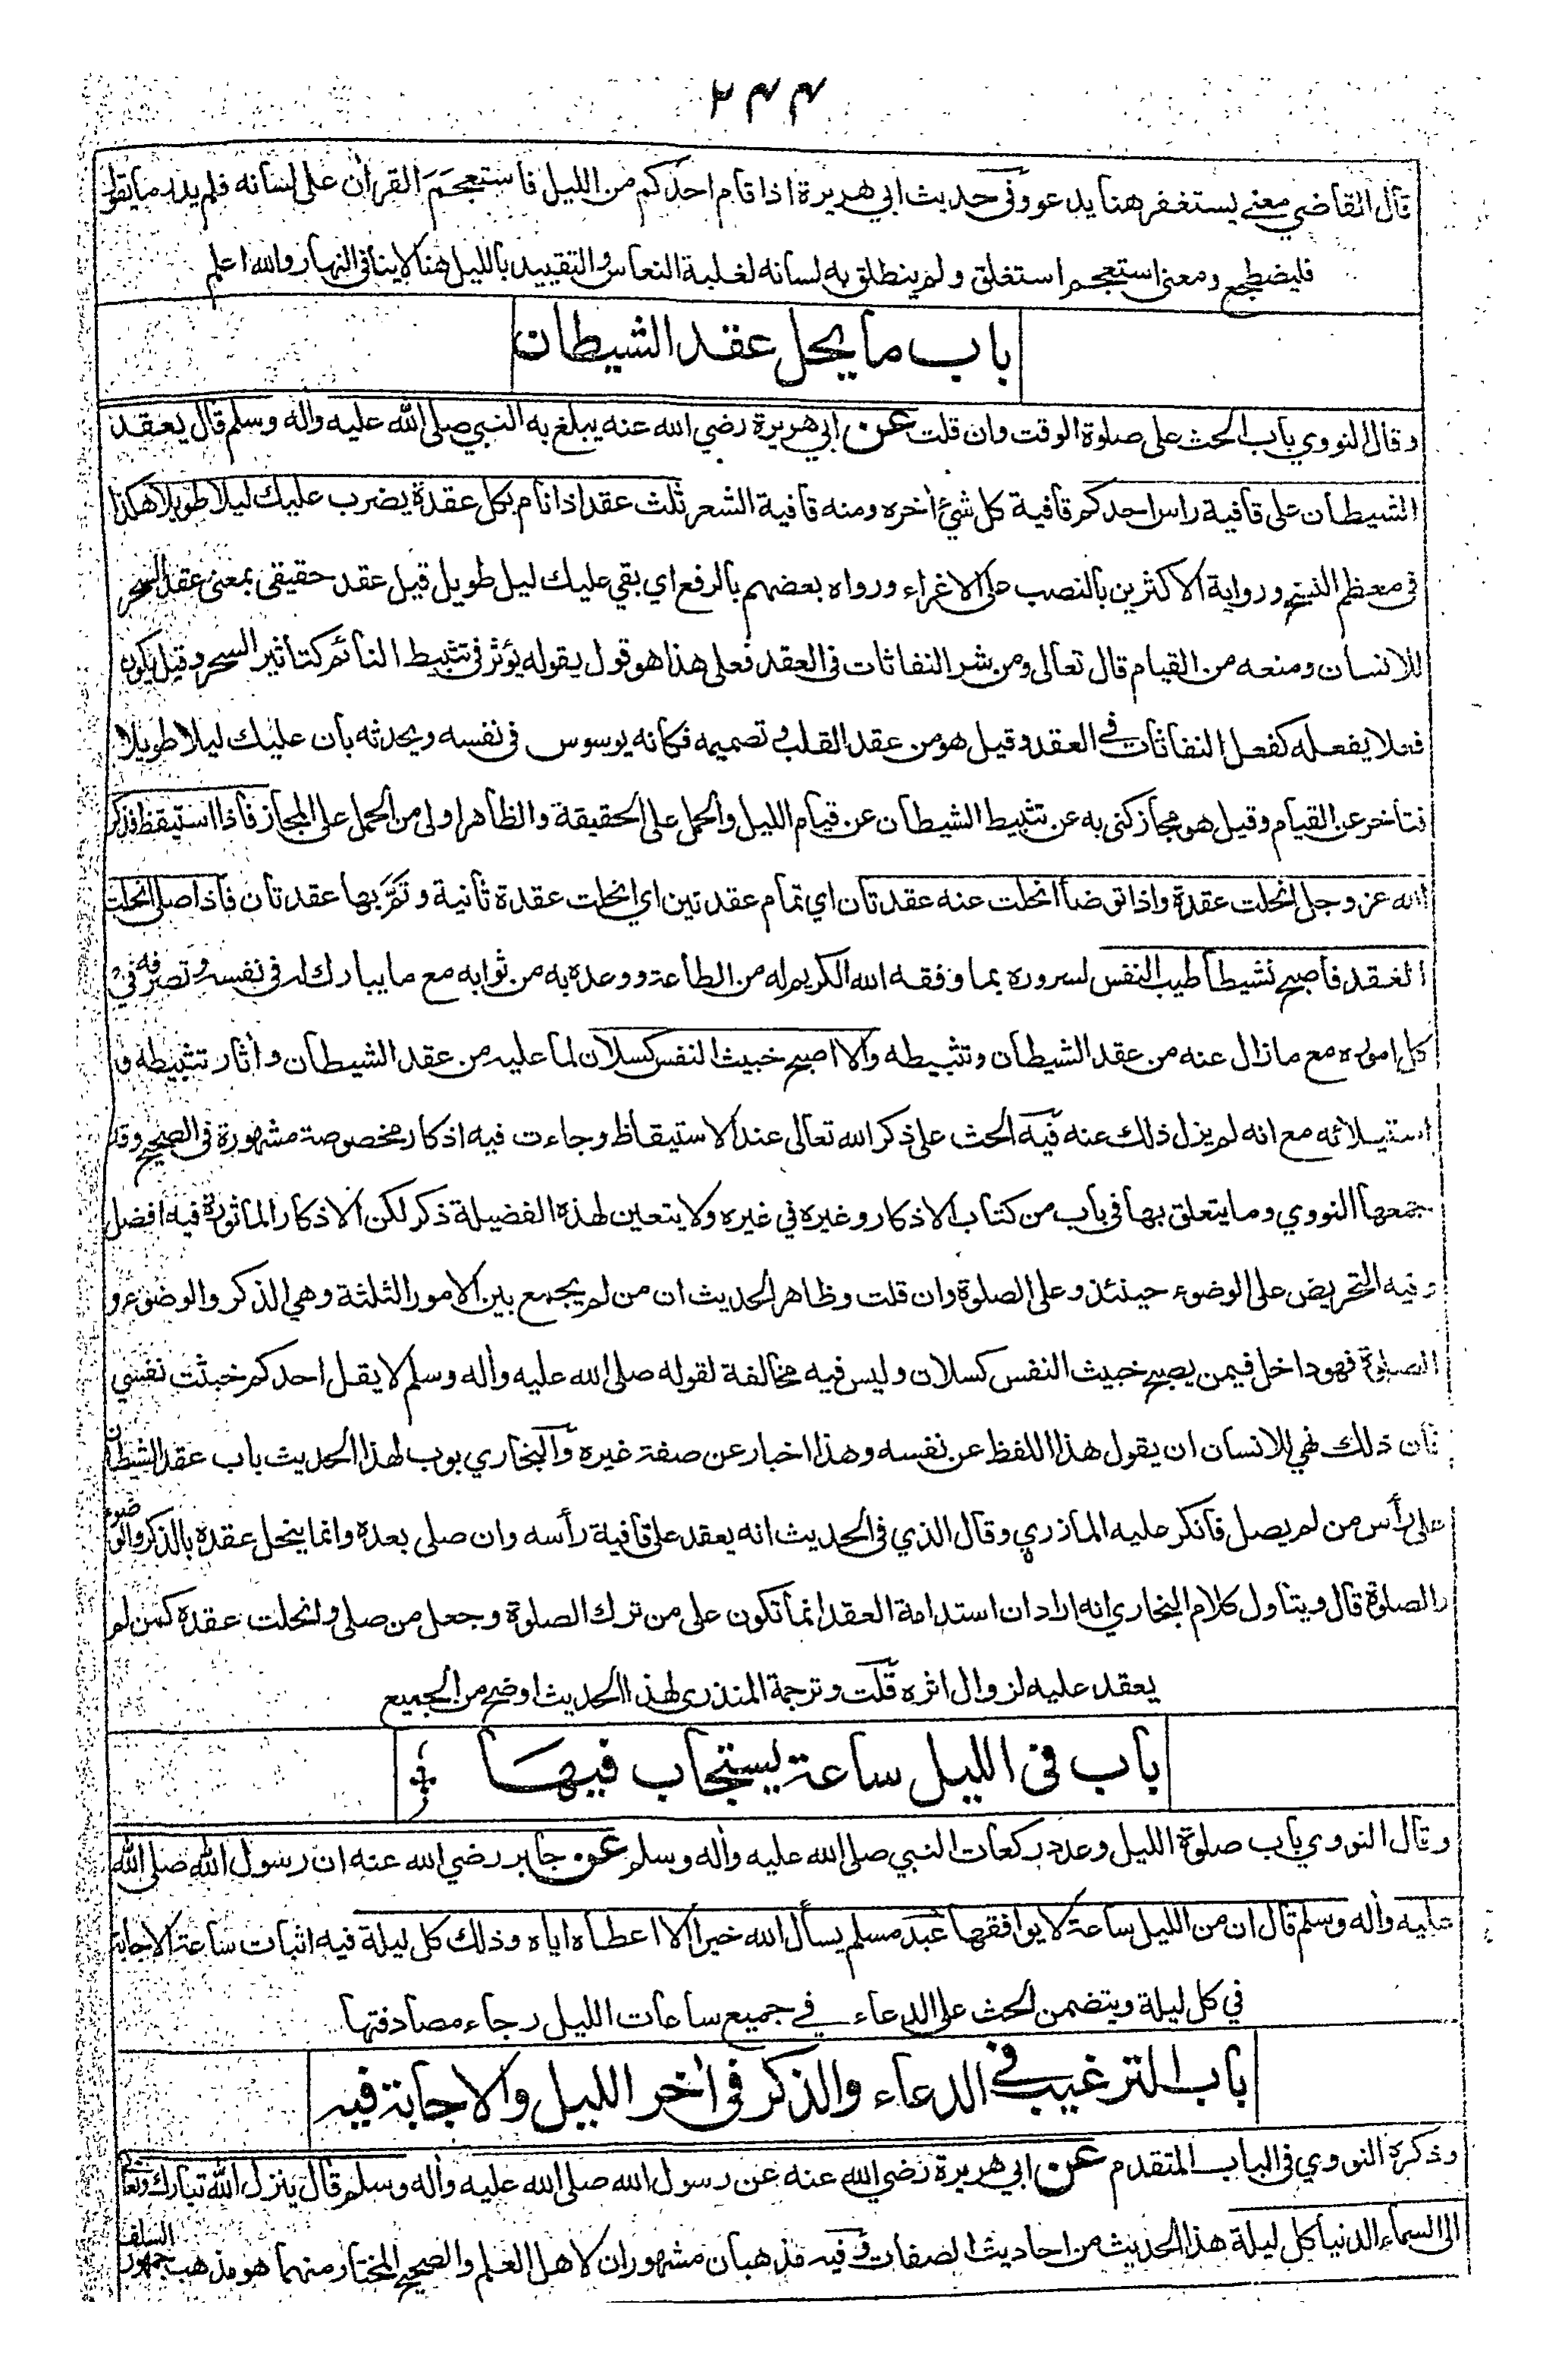 ٢٤٤
قال القاضي معنى يستغفر هنا يدعو وفي حديث ابي هريرة اذا قام احدكم من الليل فاستعجَمَ القرأن على لسانه فلم يدر ما يقول
فليضطجع ومعنى استعجم استغلق ولم ينطلق به لسانه لغلبة النعاس والتقييد بالليل هنا لاينافى النهار والله اعلم
باب ما يحل عقد الشيطان
وقال النووي باب الحث على صلوة الوقت وان قلت عن ابي هريرة رضي الله عنه يبلغ به النبي صلى الله عليه واله وسلم قال يعقد
الشيطان على قافية راس احدكم قافية كل شئ أخره ومنه قافية الشعر ثلث عقد اذا نام بكل عقدة يضرب عليك ليلا طويلا هكذا
فى معظم النسخ ورواية الاكثرين بالنصب على الاغراء ورواه بعضهم بالرفع اي بقي عليك ليل طويل قيل عقد حقيقى بمعنى عقد السحر
للانسان ومنعه من القيام قال تعالى ومن شر النفاثات فى العقد فعلى هذا هو قول يقوله يؤثر فى تثبيط النائم كتأثير السحر وقيل يكون
فعلا يفعله كفعل النفاثات في العقد وقيل هو من عقد القلب و تصميمه فكانه يوسوس فى نفسه ويحدثه بان عليك ليلا طويلا
فتأخر عن القيام وقيل هو مجاز كنى به عن تثبيط الشيطان عن قيام الليل والحمل على الحقيقة والظاهر اولى من الحمل على المجاز فاذا استيقظ فذكر
الله عز وجل انحلت عقدة واذا توضأ انحلت عنه عقدتان اي تمام عقدتين اي انحلت عقدة ثانية وتَمَّ بها عقدتان فاذا صلى انحلت
العقد فاصبح نشيطا طيب النفس لسروره بما وفقه الله الكريم له من الطاعة ووعده به من ثوابه مع ما يبارك له فى نفسه وتصرفه في
كل اموره مع ما زال عنه من عقد الشيطان وتثبيطه والا اصبح خبيث النفس كسلان لما عليه من عقد الشيطان وأثار تثبيطه و
استيلائه مع انه لم يزل ذلك عنه فيه الحث على ذكر الله تعالى عند الاستيقاظ وجاءت فيه اذكار مخصوصة مشهورة فى الصحيح وقد
جمعها النووي وما يتعلق بها فى باب من كتاب الاذكار وغيره في غيره ولا يتعين لهذه الفضيلة ذكر لكن الاذكار الماثورة فيه افضل
وفيه التحريض على الوضوء حينئذ وعلى الصلوة وان قلت وظاهر الحديث ان من لم يجمع بين الامور الثلثة وهي الذكر والوضوء و
الصلوة فهو داخل فيمن يصبح خبيث النفس كسلان وليس فيه مخالفة لقوله صلى الله عليه واله وسلم لا يقل احدكم خبثت نفسي
فان ذلك نهي للانسان ان يقول هذا اللفظ عن نفسه وهذا اخبار عن صفة غيره والبخاري بوب لهذا الحديث باب عقد الشيطان
على رأس من لم يصل فانكر عليه المازري وقال الذي فى الحديث انه يعقد على قافية رأسه وان صلى بعده وانما ينحل عقده بالذكر والوضوء
والصلوة قال ويتأول كلام البخاري انه اراد ان استدامة العقد انما تكون على من ترك الصلوة وجعل من صلى وانحلت عقده كمن لم
يعقد عليه لزوال اثره قلت وترجمة المنذرى لهذا الحديث اوضح من الجميع
باب فى الليل ساعة يستجاب فيها
وقال النووي باب صلوة الليل وعدد ركعات النبي صلى الله عليه واله وسلم عن جابر رضي الله عنه ان رسول الله صلى الله
عليه واله وسلم قال ان من الليل ساعة لا يوافقها عبد مسلم يسأل الله خيرا الا اعطاه اياه وذلك كل ليلة فيه اثبات ساعة الاجابة
في كل ليلة ويتضمن الحث على الدعاء في جميع ساعات الليل رجاء مصادفتها
باب الترغيب في الدعاء والذكر فى أخر الليل والاجابة فيه
وذكره النووي فى الباب المتقدم عن ابي هريرة رضي الله عنه عن رسول الله صلى الله عليه واله وسلم قال ينزل الله تبارك وتعالى
الى السماء الدنيا كل ليلة هذا الحديث من احاديث الصفات وفيه مذهبان مشهوران لاهل العلم والصحيح المختار منهما هو مذهب جمهور السلف